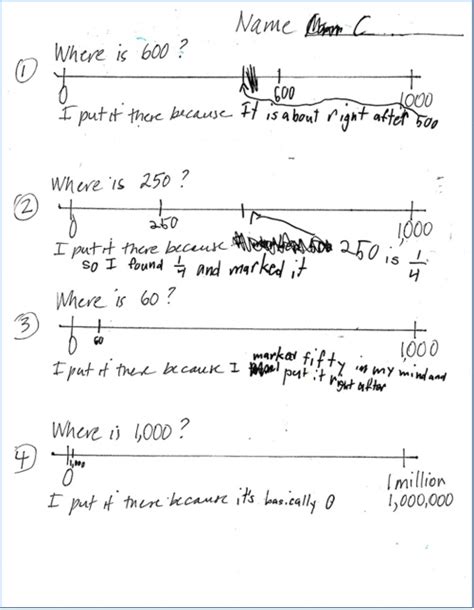 Name C
① Where is 600?
0 600 1,000
I put it there because It is about right after 500
② Where is 250?
0 250 1,000
I put it there because 250 is 1/4
so I found 1/4 and marked it
③ Where is 60?
0 60 1,000
I put it there because I marked fifty in my mind and
put it right after
④ Where is 1,000?
0 1,000 1 million
1,000,000
I put it there because it's basically 0